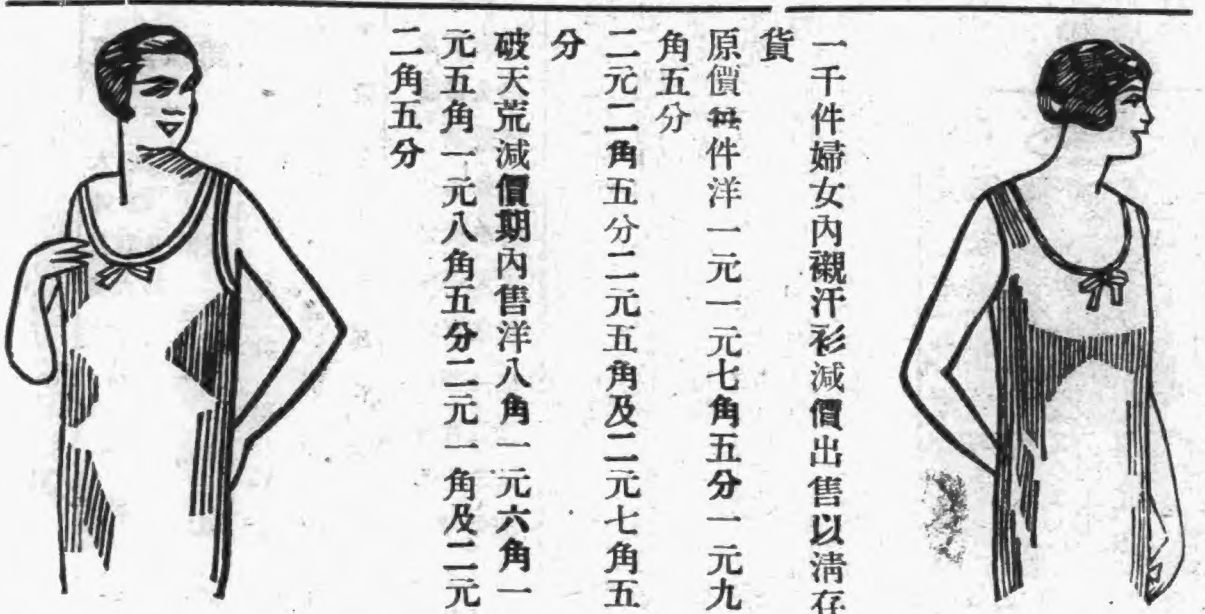 一千件婦女內襯汗衫減價出售以清存
貨
原價每件洋一元一元七角五分一元九
角五分
二元二角五分二元五角及二元七角五
分
破天荒減價期內售洋八角一元六角一
元五角一元八角五分二元一角及二元
二角五分